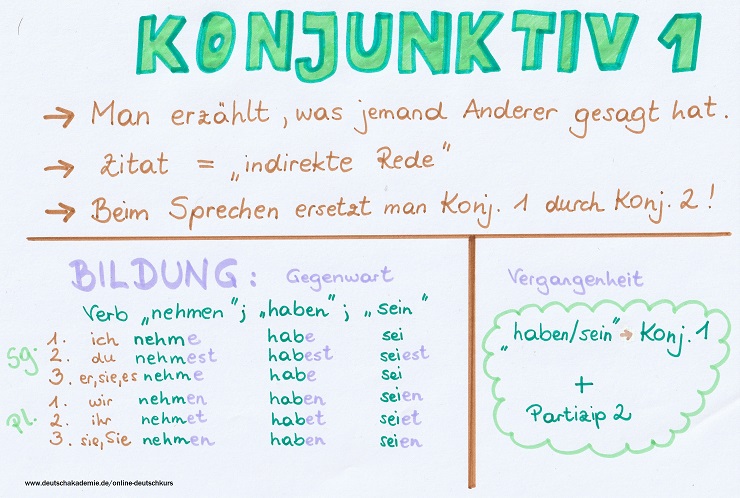 KONJUNKTIV 1
→ Man erzählt, was jemand Anderer gesagt hat.
→ Zitat = „indirekte Rede"
→ Beim Sprechen ersetzt man Konj. 1 durch Konj. 2!
BILDUNG: Gegenwart
Verb „nehmen"; „haben"; „sein"
Sg.
1. ich nehme habe sei
2. du nehmest habest seiest
3. er, sie, es nehme habe sei
Pl.
1. wir nehmen haben seien
2. ihr nehmet habet seiet
3. sie, Sie nehmen haben seien
Vergangenheit
„haben/sein" → Konj. 1
+
Partizip 2
www.deutschakademie.de/online-deutschkurs